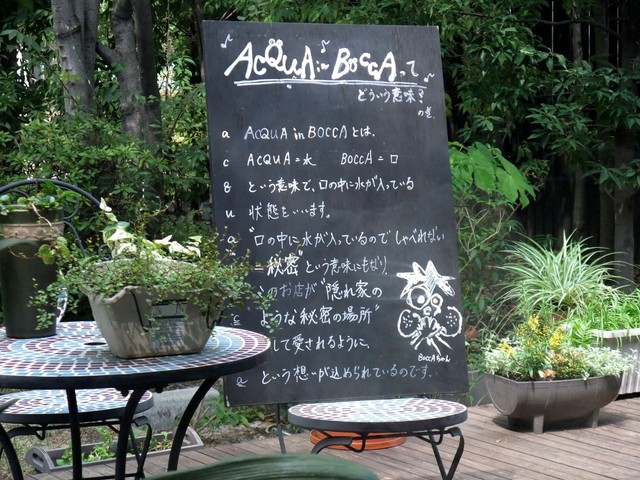 ACQUA in BOCCAって
どういう意味?
の巻
a ACQUA in BOCCAとは、
c ACQUA=水 BOCCA=口
という意味で、口の中に水が入っている
u 状態をいいます。
a "口の中に水が入っているのでしゃべれない
="秘密"という意味にもなり、
のお店が"隠れ家の
ような秘密の場所"
して愛されるように、
a という想いが込められているのです。
BOCCAちゃん